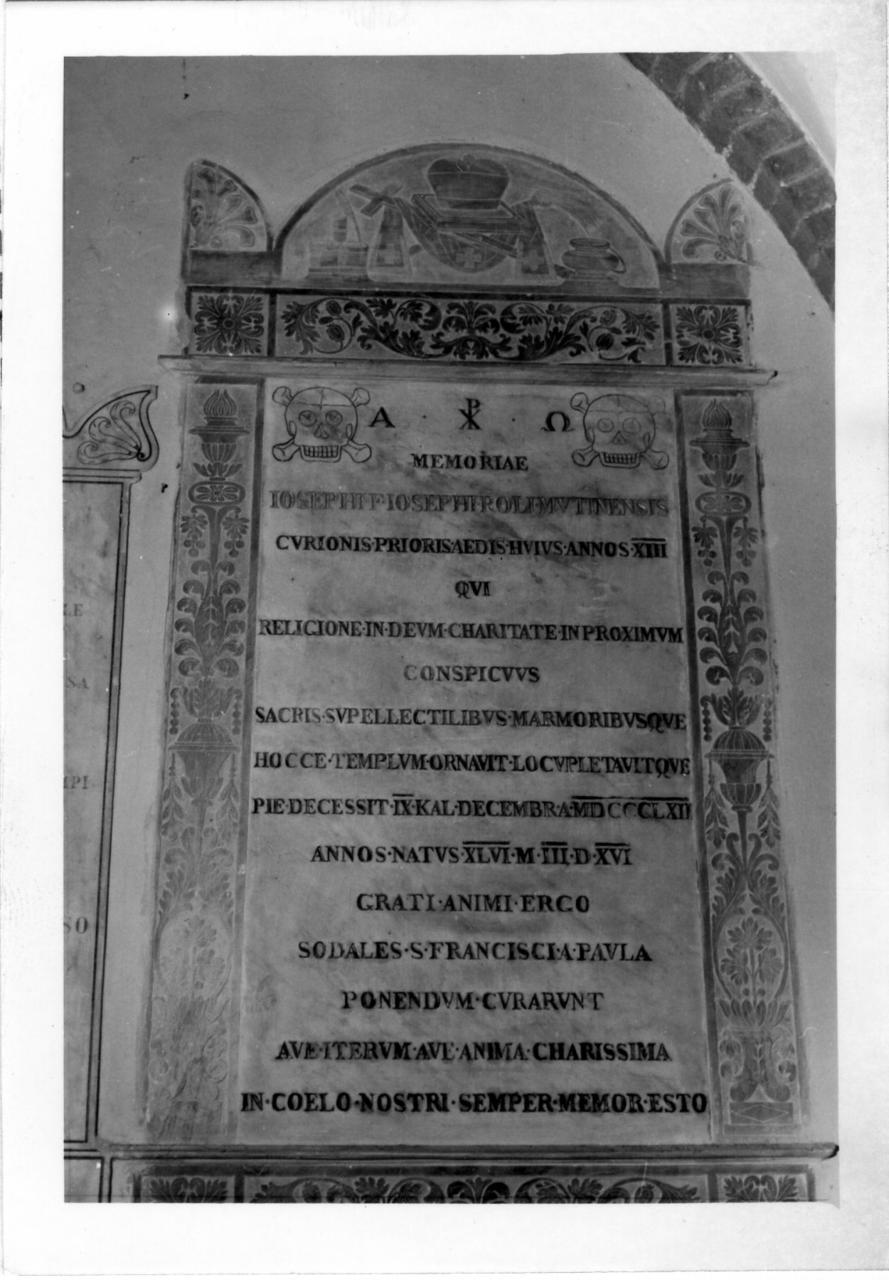 Α · ☧ · Ω
MEMORIAE
IOSEPHI·F·IOSEPHI·ROLI·MVTINENSIS
CVRIONIS·PRIORIS·AEDIS·HVIVS·ANNOS·XIII
QVI
RELIGIONE·IN·DEVM·CHARITATE·IN·PROXIMVM
CONSPICVVS
SACRIS·SVPELLECTILIBVS·MARMORIBVSQVE
HOCCE·TEMPLVM·ORNAVIT·LOCVPLETAVITQVE
PIE·DECESSIT·IX·KAL·DECEMBR·A·MDCCCLXII
ANNOS·NATVS·XLVI·M·III·D·XVI
GRATI·ANIMI·ERGO
SODALES·S·FRANCISCI·A·PAVLA
PONENDVM·CVRARVNT
AVE·ITERVM·AVE·ANIMA·CHARISSIMA
IN·COELO·NOSTRI·SEMPER·MEMOR·ESTO